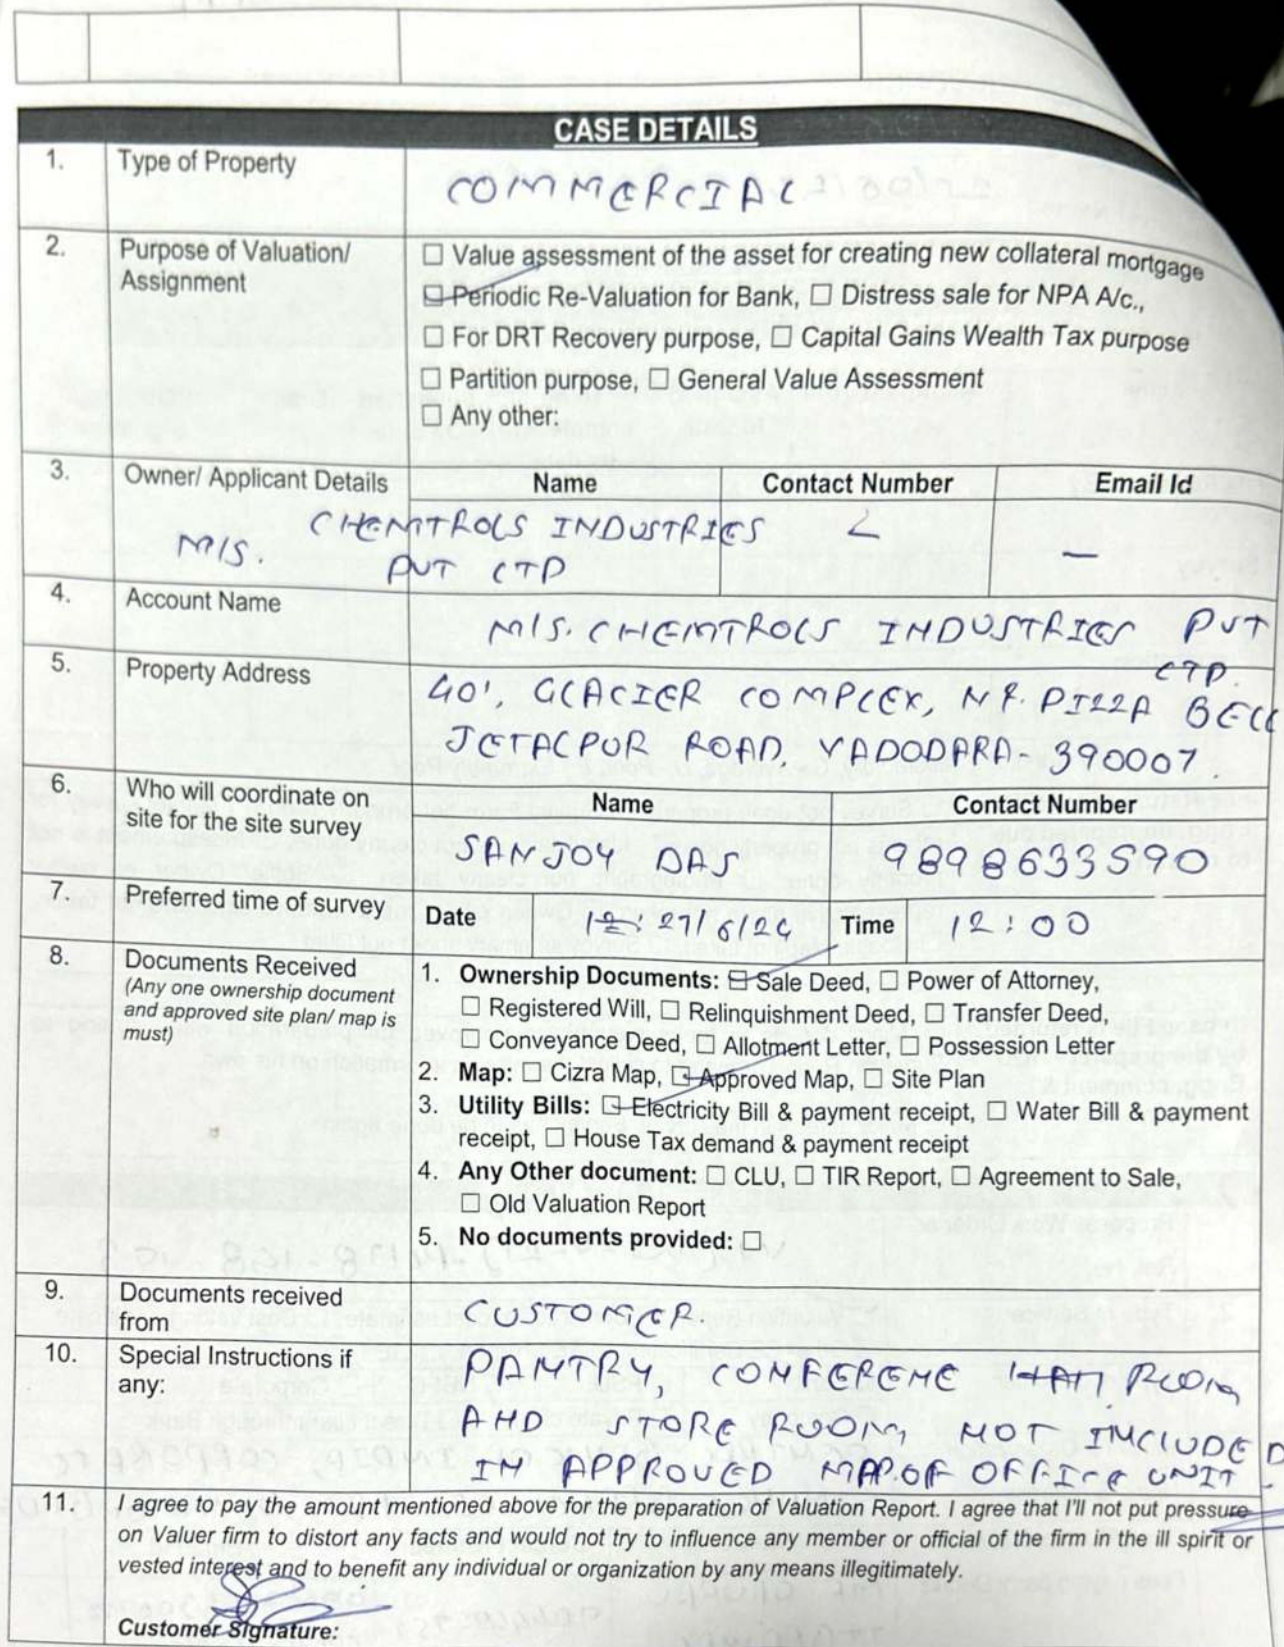 CASE DETAILS
1. Type of Property COMMERCIAL
2. Purpose of Valuation/ Assignment
☐ Value assessment of the asset for creating new collateral mortgage
☑ Periodic Re-Valuation for Bank, ☐ Distress sale for NPA A/c.,
☐ For DRT Recovery purpose, ☐ Capital Gains Wealth Tax purpose
☐ Partition purpose, ☐ General Value Assessment
☐ Any other:
3. Owner/ Applicant Details Name Contact Number Email Id
M/S. CHEMTROLS INDUSTRIES
PVT LTD
–
4. Account Name M/S. CHEMTROLS INDUSTRIES PVT
LTD.
5. Property Address 401, GLACIER COMPLEX, NR. PIZZA BELL
JETALPUR ROAD, VADODARA- 390007.
6. Who will coordinate on
site for the site survey
Name Contact Number
SANJOY DAS 9898633590
7. Preferred time of survey Date 27/6/24 Time 12:00
8. Documents Received
(Any one ownership document
and approved site plan/ map is
must)
1. Ownership Documents: ☑ Sale Deed, ☐ Power of Attorney,
☐ Registered Will, ☐ Relinquishment Deed, ☐ Transfer Deed,
☐ Conveyance Deed, ☐ Allotment Letter, ☐ Possession Letter
2. Map: ☐ Cizra Map, ☑ Approved Map, ☐ Site Plan
3. Utility Bills: ☑ Electricity Bill & payment receipt, ☐ Water Bill & payment
receipt, ☐ House Tax demand & payment receipt
4. Any Other document: ☐ CLU, ☐ TIR Report, ☐ Agreement to Sale,
☐ Old Valuation Report
5. No documents provided: ☐
9. Documents received
from
CUSTOMER
10. Special Instructions if
any:
PANTRY, CONFERENE ROOM
AND STORE ROOM NOT INCLUDED
IN APPROVED MAP. OF OFFICE UNIT.
11. I agree to pay the amount mentioned above for the preparation of Valuation Report. I agree that I'll not put pressure
on Valuer firm to distort any facts and would not try to influence any member or official of the firm in the ill spirit or
vested interest and to benefit any individual or organization by any means illegitimately.
Customer Signature: